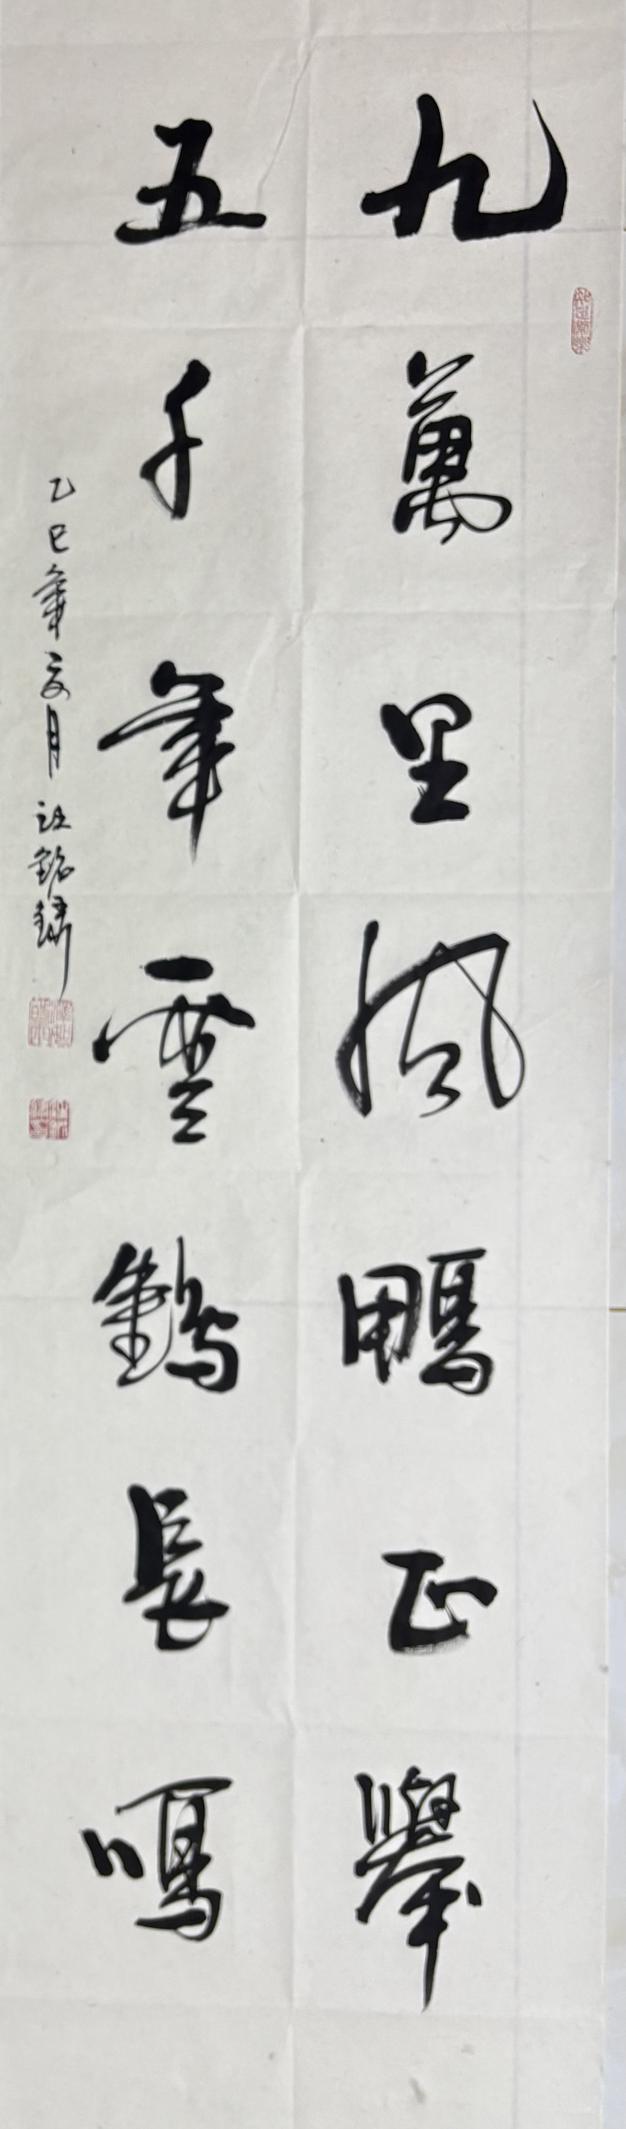 九萬里風鵬正舉
五千年雲鶴長鳴
乙巳年亥月 汪銘鏽